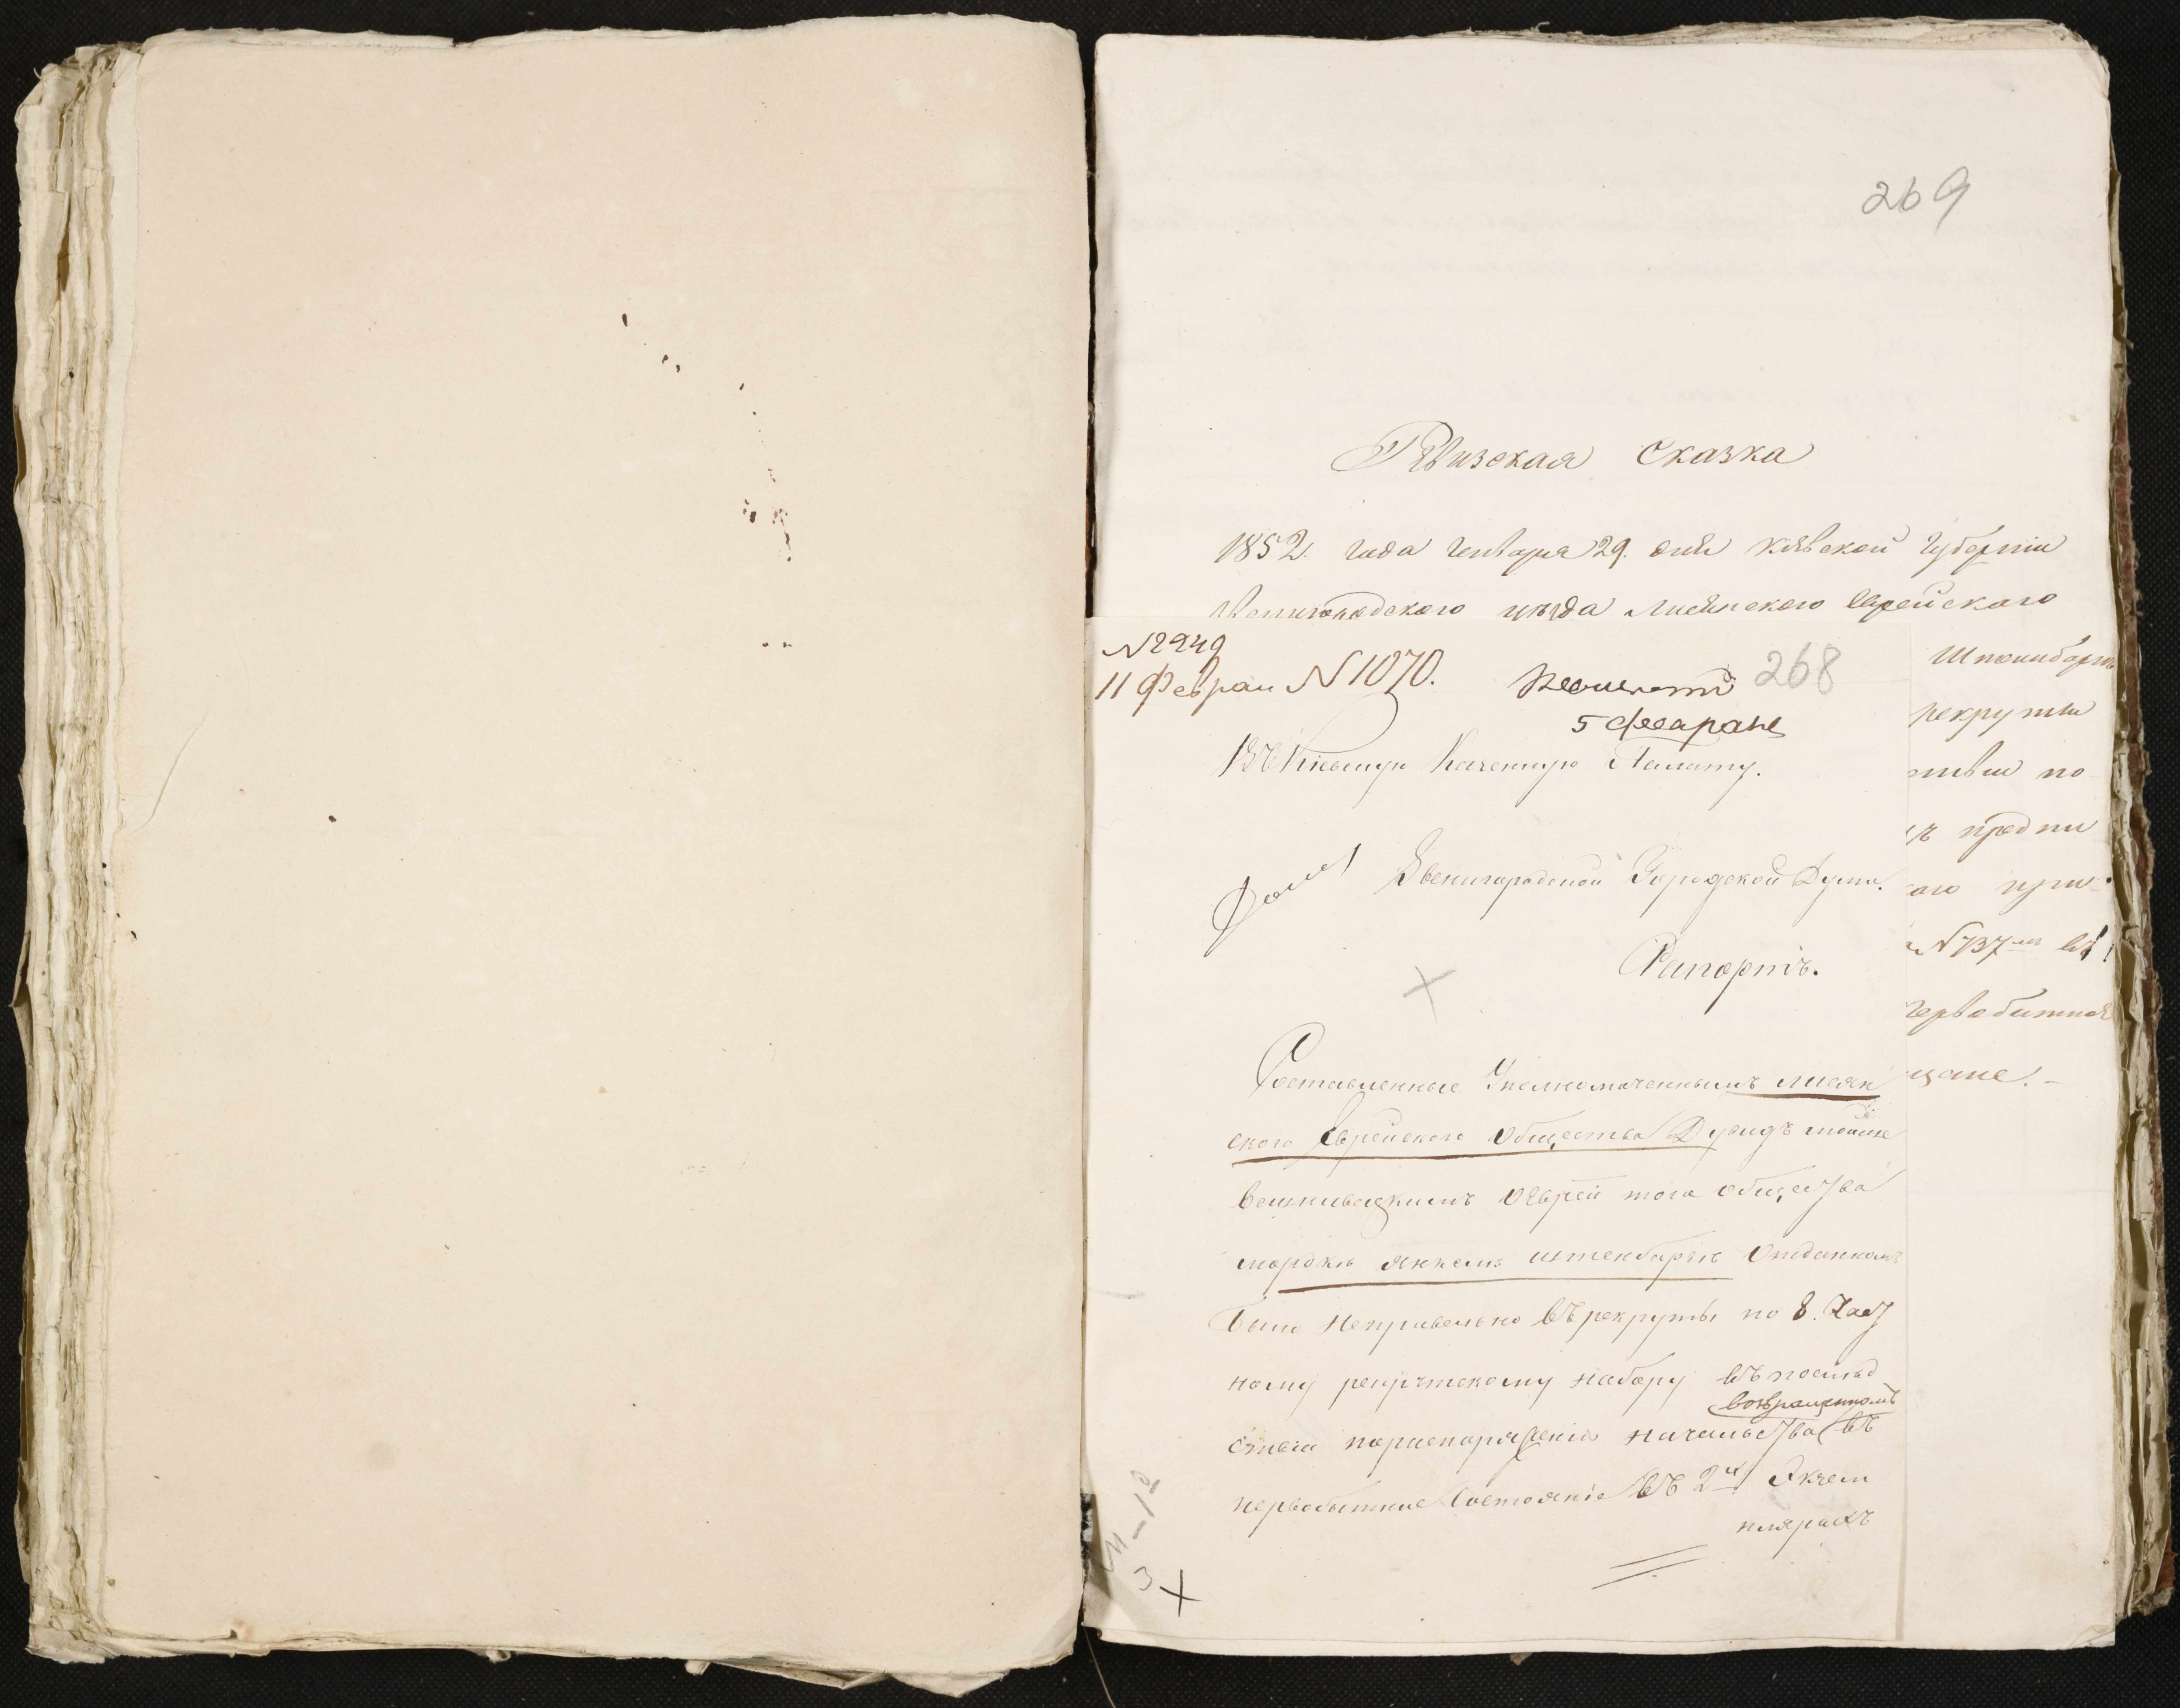 269
Ревизская Сказка
1852. года генваря 29. дня Киевской губернии
Звенигородского уезда Лисянского Еврейского
Штеинбарга
рекруты
по
предпи
при-
N 737
первобитное
268
N 2949
11 Феврал N 1070.
5 февраля
Въ Киевскую Казенную Палату.
Звенигородской Городской Думы.
Рапортъ.
Составленные Уполномоченнымъ лисян
ского Еврейского Общества Дувидъ
о Еврей того общества
мордки янкель штенбаргъ Отданномъ
было неправельно въ рекруты по 8. Част
ному рекрутскому набору въ послед
возвращенномъ
ствіи по распоряженію начальства въ
первобытное состояніе въ 2хъ Экзем
плярахъ